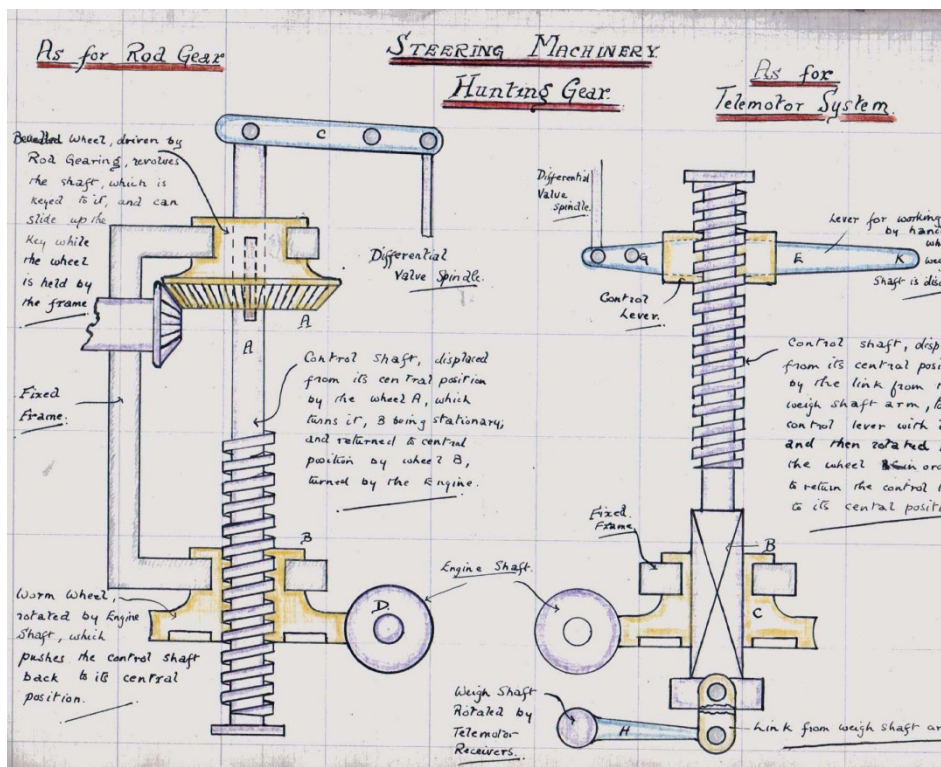 As for Rod Gear
Steering Machinery
Hunting Gear.
As for
Telemotor System.
Bevelled Wheel, driven by
Rod Gearing, revolves
the shaft, which is
keyed to it, and can
slide up the
Key while
the wheel
is held by
the frame.
C
Differential
Valve Spindle.
A
A
Fixed
Frame.
Control shaft, displaced
from its central position
by the wheel A, which
turns it, B being stationary,
and returned to central
position by wheel B,
turned by the Engine.
B
Worm Wheel,
rotated by Engine
Shaft, which
pushes the control shaft
back to its central
position.
D.
Engine Shaft.
Differential
Valve
Spindle.
G
E
K
Control
Lever.
Lever for working
by han
wh
wei
Shaft is disc
Control shaft, disp
from its central posi
by the link from
weigh shaft arm,
control lever with
and then rotated
the wheel in ord
to return the control
to its cental posit
Fixed
Frame.
B
C
Weigh Shaft
Rotated by
Telemotor
Receivers.
H
Link from weigh shaft ar